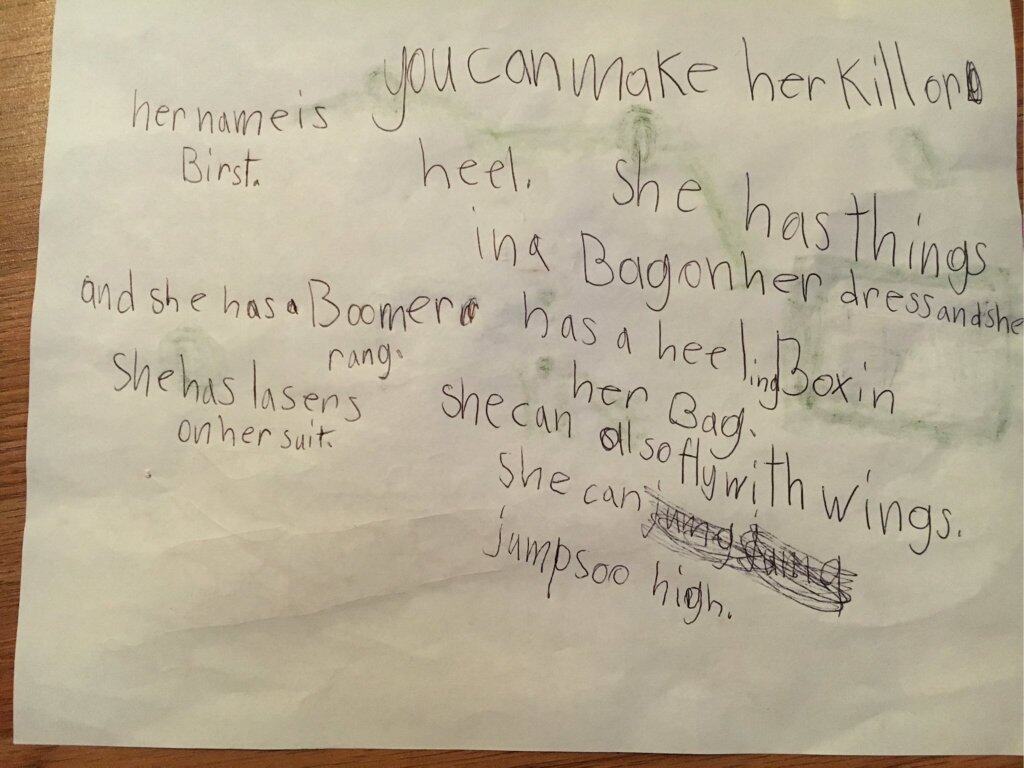 her name is
Birst.
and she has a Boomer
rang.
She has lasers
on her suit.
you can make her Kill or
heel. She has things
in a Bag on her dress and she
has a heeling Box in
her Bag.
she can also fly with wings.
she can
jump soo high.